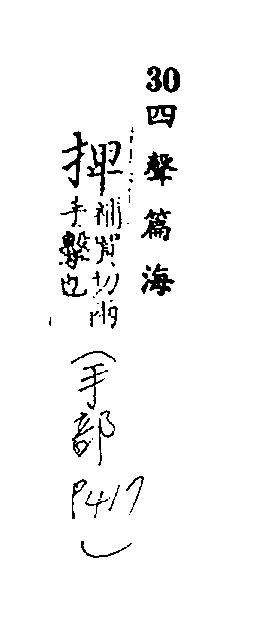 30四聲篇海
捭
補買切兩
手擊也
(手部
P417)